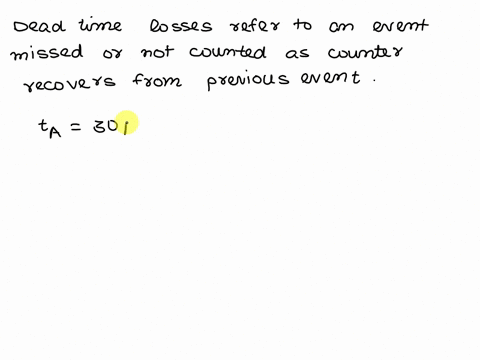 Dead time losses refer to an event
missed or not counted as counter
recovers from previous event.
tA = 30